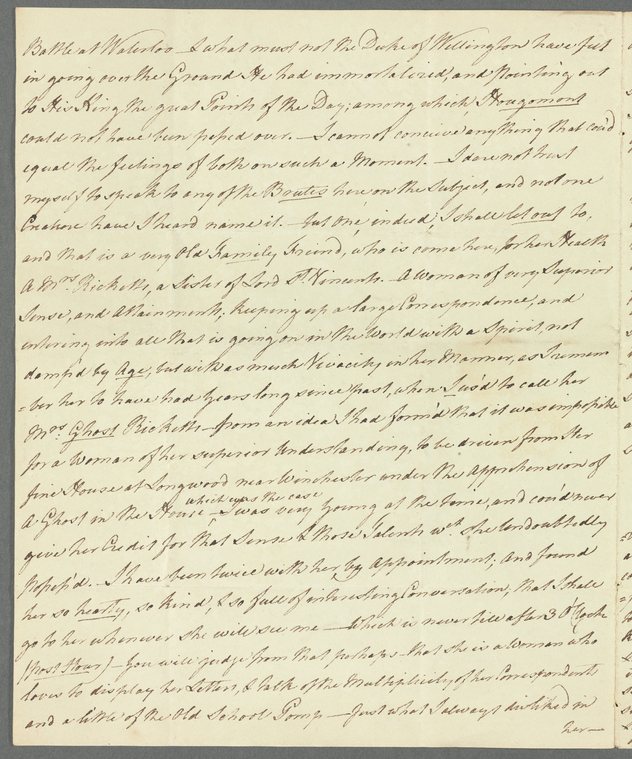 Battle at Waterloo – & what must not the Duke of Wellington have felt
in going over the Ground He had immortalized, and Pointing out
to His King the great Points of the Day; among which, Hougomont
could not have been passed over. – I cannot conceive anything that cou'd
equal the feelings of both on such a Moment. – I dare not trust
myself to speak to any of the Brutes here on the Subject, and not one
Creature have I heard name it. – but One, indeed, I shall let out to,
and that is a very Old Family Friend, who is come here, for her Health
A Mrs. Ricketts, a Sister of Lord St. Vincents. – A Woman of very Superior
Sense, and Attainments, keeping up a large Correspondence, and
entering into all that is going on in the World with a Spirit, not
damp'd by Age, but with as much Vivacity in her Manner, as I remem
=ber her to have had Years long since past, when I us'd to call her
Mrs. Ghost Ricketts – from an idea I had form'd that it was impossible
for a Woman of her superior Understanding, to be driven from Her
fine House at Longwood near Winchester under the Apprehension of
which was the case
A Ghost in the House – I was very Young at the Time, and cou'd never
give her Credit for that Sense & those Talents wch. she Undoubtedly
Possess'd. – I have been twice with her, by Appointment, and found
her so hearty, so kind, & so full of interesting Conversation, that I shall
go to her whenever she will see me – which is never till after 3 O'Clock
(Post Hour) – You will judge from that perhaps – that she is a Woman who
loves to display her Letters, & talk of the Multiplicity of her Correspondents
and a little of the Old School Pomp – Just what I always disliked in
her –